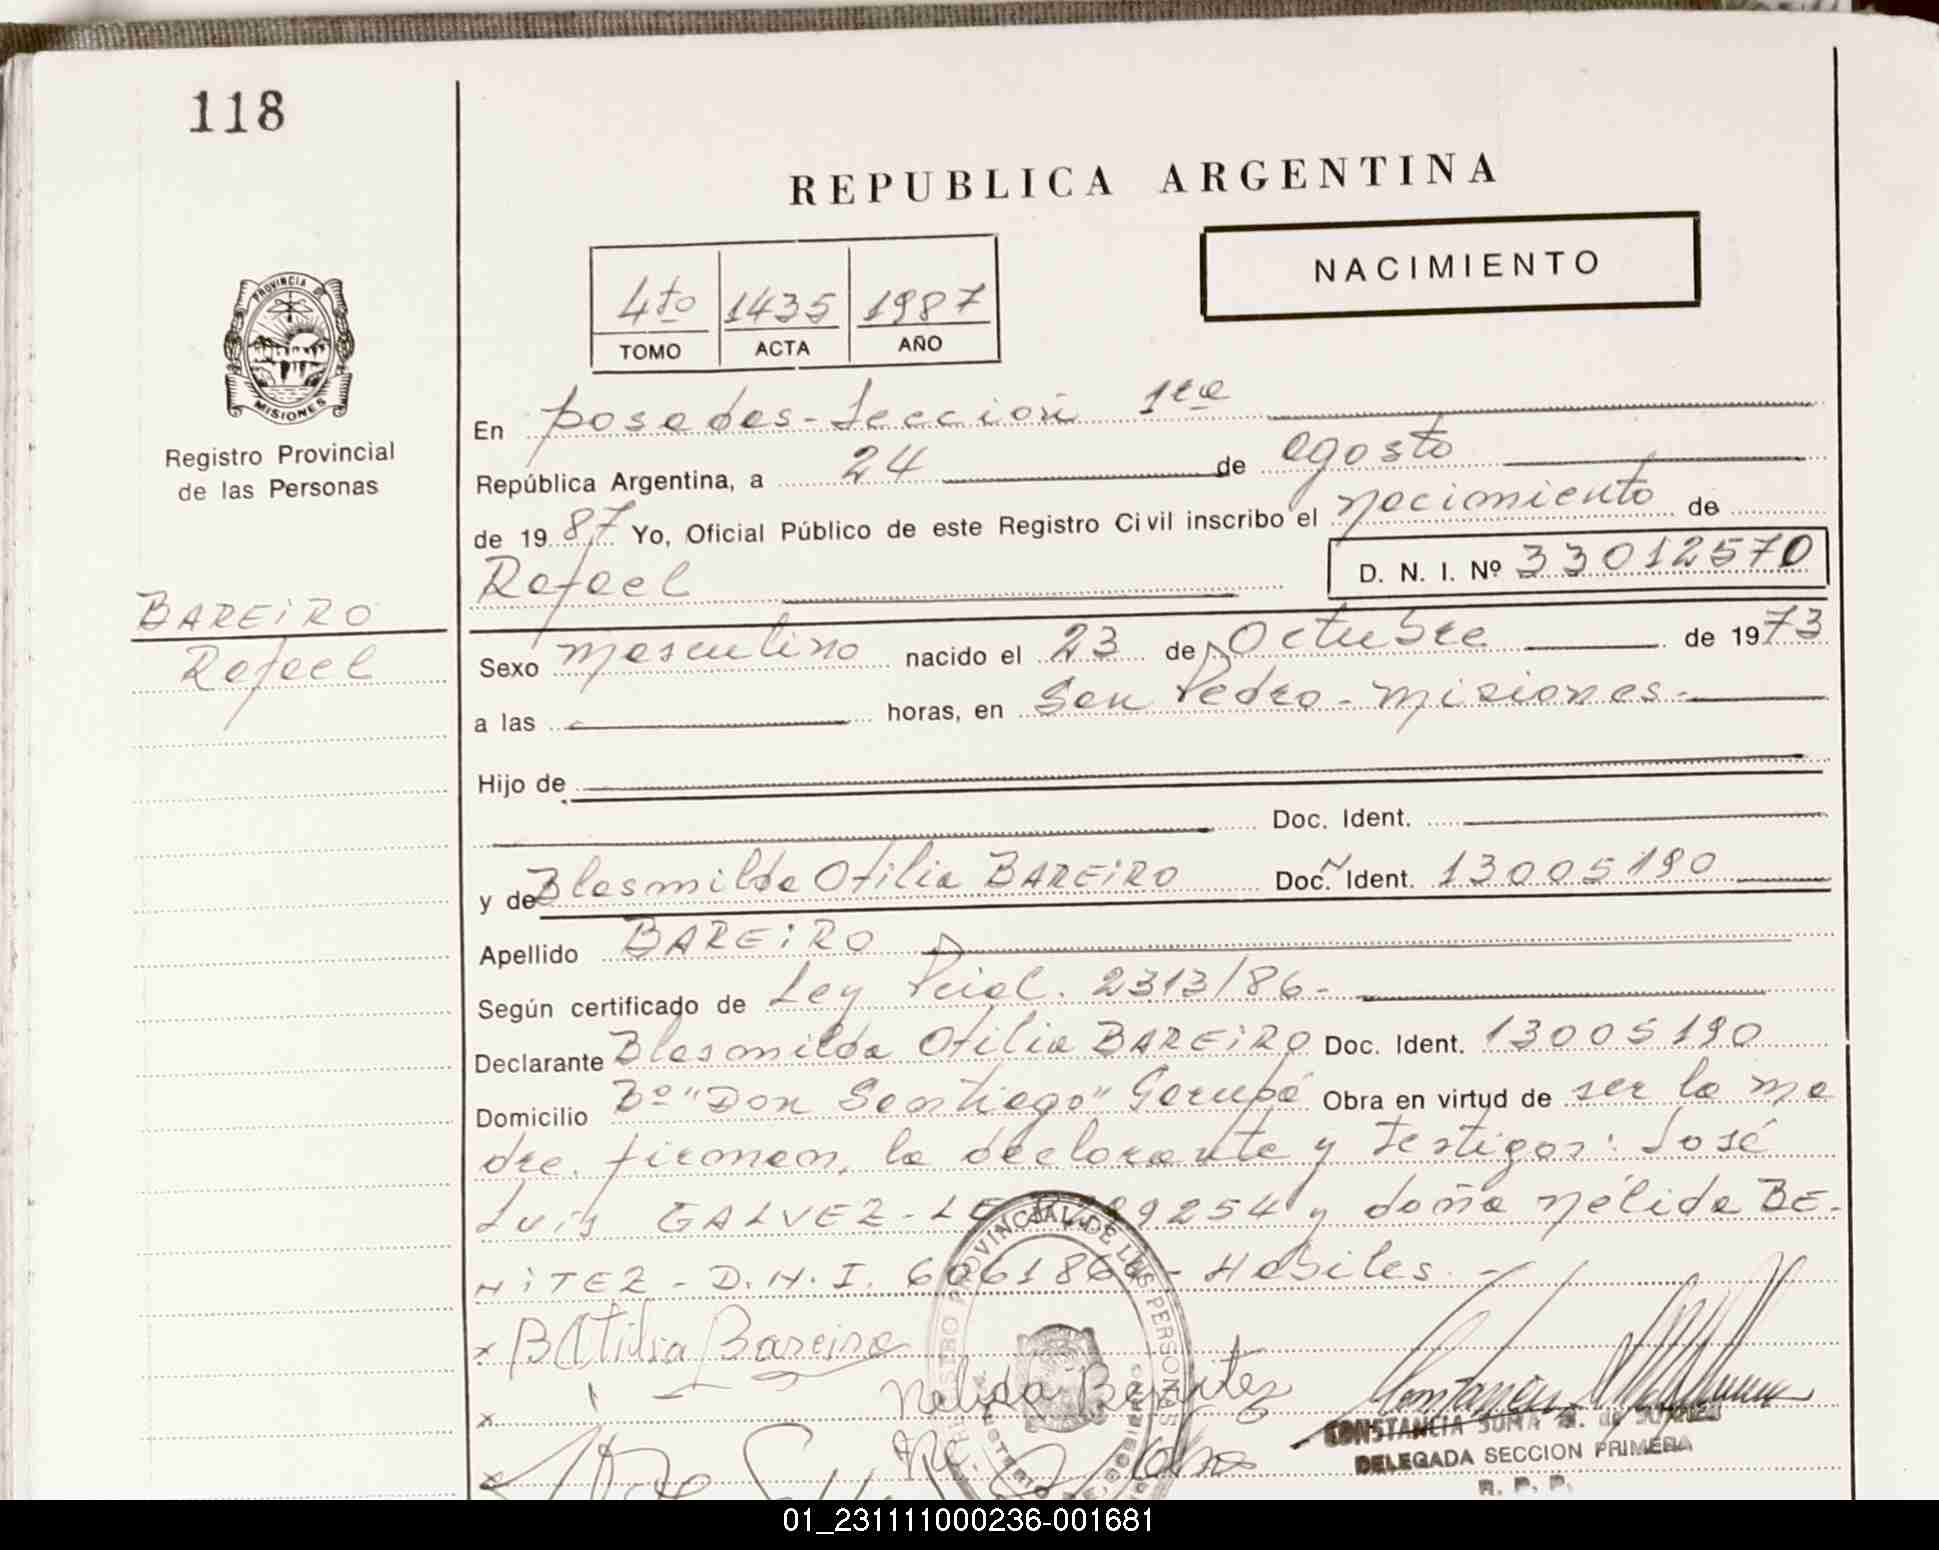 118
REPUBLICA ARGENTINA
NACIMIENTO
4to 1435 1987
TOMO ACTA AÑO
PROVINCIA DE
MISIONES
Registro Provincial
de las Personas
BAREIRO
Rafael
En Posadas-Sección 1ra
República Argentina, a 24 de agosto
de 1987 Yo, Oficial Público de este Registro Civil inscribo el nacimiento de
Rafael D. N. I. Nº 33012570
Sexo masculino nacido el 23 de Octubre de 1973
a las horas, en San Pedro - Misiones-
Hijo de
Doc. Ident.
y de Blasmilda Otilia BAREIRO Doc. Ident. 13005190
Apellido BAREIRO
Según certificado de Ley Pcial. 2313/86-
Declarante Blasmilda Otilia BAREIRO Doc. Ident. 13005190
Domicilio Bº "Don Santiago" Garupá Obra en virtud de ser la ma
dre. firman, la declarante y testigos: José
Luis GALVEZ - LE 9254 y doña Nélida BE-
NITEZ - D.N.I. - Habiles. -
x B Otilia Bareiro
x Nelida Benitez
x
CONSTANCIA
DELEGADA SECCION PRIMERA
R. P. P.
01_231111000236-001681